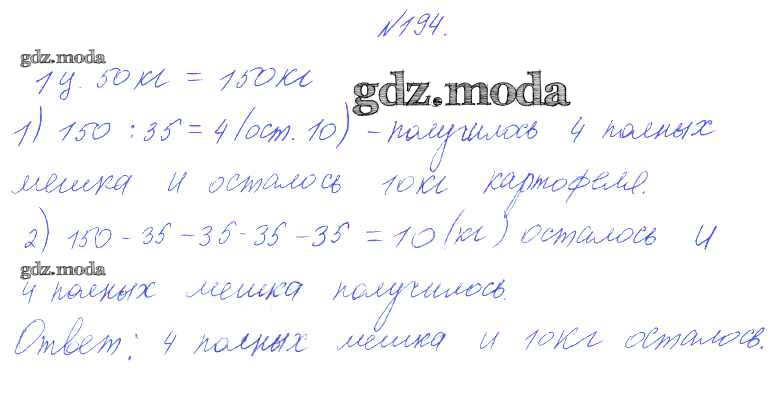 №194.
gdz.moda
1ц. 50кг = 150кг
gdz.moda
1) 150 : 35 = 4 (ост. 10) - получилось 4 полных
мешка и осталось 10кг картофеля.
2) 150 - 35 - 35 - 35 - 35 = 10 (кг) осталось и
gdz.moda
4 полных мешка получилось.
Ответ: 4 полных мешка и 10кг осталось.